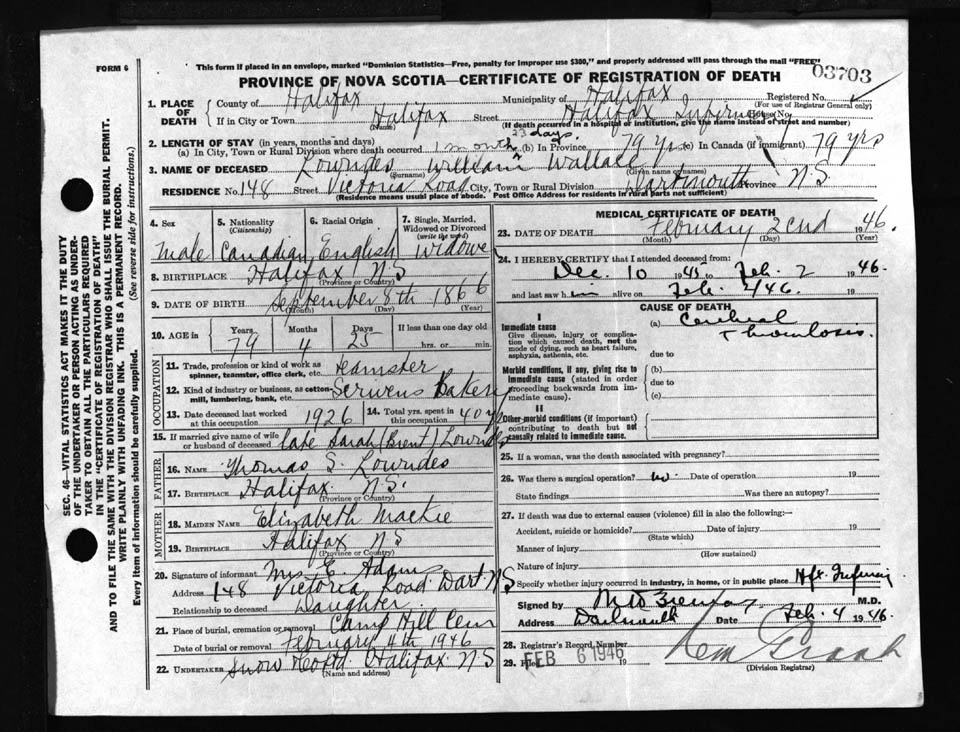 FORM 6
This form if placed in an envelope, marked "Dominion Statistics—Free, penalty for improper use $300," and properly addressed will pass through the mail "FREE"
PROVINCE OF NOVA SCOTIA—CERTIFICATE OF REGISTRATION OF DEATH
03703
1. PLACE OF DEATH { County of Halifax Municipality of Halifax Registered No.
(For use of Registrar General only)
If in City or Town Halifax Street Halifax House No.
(Name) (If death occurred in a hospital or institution, give the name instead of street and number)
2. LENGTH OF STAY (in years, months and days) 23 days
(a) In City, Town or Rural Division where death occurred 1 month (b) In Province 79 yrs (c) In Canada (if immigrant) 79 yrs
3. NAME OF DECEASED Lowndes William Wallace
(Surname) (Given name or names)
RESIDENCE No. 148 Street Victoria Road City, Town or Rural Division Dartmouth Province N.S
(Residence means usual place of abode. Post Office Address for residents in rural parts not sufficient)
4. Sex 5. Nationality (Citizenship) 6. Racial Origin 7. Single, Married, Widowed or Divorced (write the word)
Male Canadian English Widowe
8. BIRTHPLACE Halifax N.S
(Province or Country)
9. DATE OF BIRTH September 8th 1866
(Month) (Day) (Year)
10. AGE in { Years Months Days If less than one day old
79 4 25 hrs. or min.
OCCUPATION
11. Trade, profession or kind of work as spinner, teamster, office clerk, etc. teamster
12. Kind of industry or business, as cotton-mill, lumbering, bank, etc. Scrivens Bakery
13. Date deceased last worked at this occupation 1926 14. Total yrs. spent in this occupation 40 yrs
15. If married give name of wife or husband of deceased Late Sarah (Brent) Lowndes
FATHER
16. NAME Thomas S. Lowndes
17. BIRTHPLACE Halifax N.S.
(Province or Country)
MOTHER
18. MAIDEN NAME Elizabeth Mackie
19. BIRTHPLACE Halifax N.S
(Province or Country)
20. Signature of informant Mrs E. Adams
Address 148 Victoria Road Dart. N.S
Relationship to deceased Daughter
21. Place of burial, cremation or removal Camp Hill Cem
Date of burial or removal February 4th 1946
22. UNDERTAKER Snow Halifax N.S
(Name and address)
MEDICAL CERTIFICATE OF DEATH
23. DATE OF DEATH February 2cnd 1946.
(Month) (Day) (Year)
24. I HEREBY CERTIFY that I attended deceased from:
Dec. 10 1945 to Feb. 2 1946.
and last saw him alive on Feb. 2/46. 19
CAUSE OF DEATH
I
Immediate cause
Give disease, injury or complication which caused death, not the mode of dying, such as heart failure, asphyxia, asthenia, etc.
(a) Cerebral Thrombosis.
due to
Morbid conditions, if any, giving rise to immediate cause (stated in order proceeding backwards from immediate cause).
(b)
due to
(c)
II
Other morbid conditions (if important) contributing to death but not causally related to immediate cause.
25. If a woman, was the death associated with pregnancy?
26. Was there a surgical operation? no. Date of operation 19
State findings Was there an autopsy?
27. If death was due to external causes (violence) fill in also the following:—
Accident, suicide or homicide? Date of injury 19
(State which)
Manner of injury
(How sustained)
Nature of injury
Specify whether injury occurred in industry, in home, or in public place Hfx. Infirmary
Signed by M.D.
Address Dartmouth Date Feb. 4 1946.
28. Registrar's Record Number
29. Filed FEB 6 1946 19
(Division Registrar)
SEC. 46—VITAL STATISTICS ACT MAKES IT THE DUTY OF THE UNDERTAKER OR PERSON ACTING AS UNDERTAKER TO OBTAIN ALL THE PARTICULARS REQUIRED IN THE "CERTIFICATE OF REGISTRATION OF DEATH" AND TO FILE THE SAME WITH THE DIVISION REGISTRAR WHO SHALL ISSUE THE BURIAL PERMIT.
WRITE PLAINLY WITH UNFADING INK. THIS IS A PERMANENT RECORD.
Every item of information should be carefully supplied. (See reverse side for instructions.)